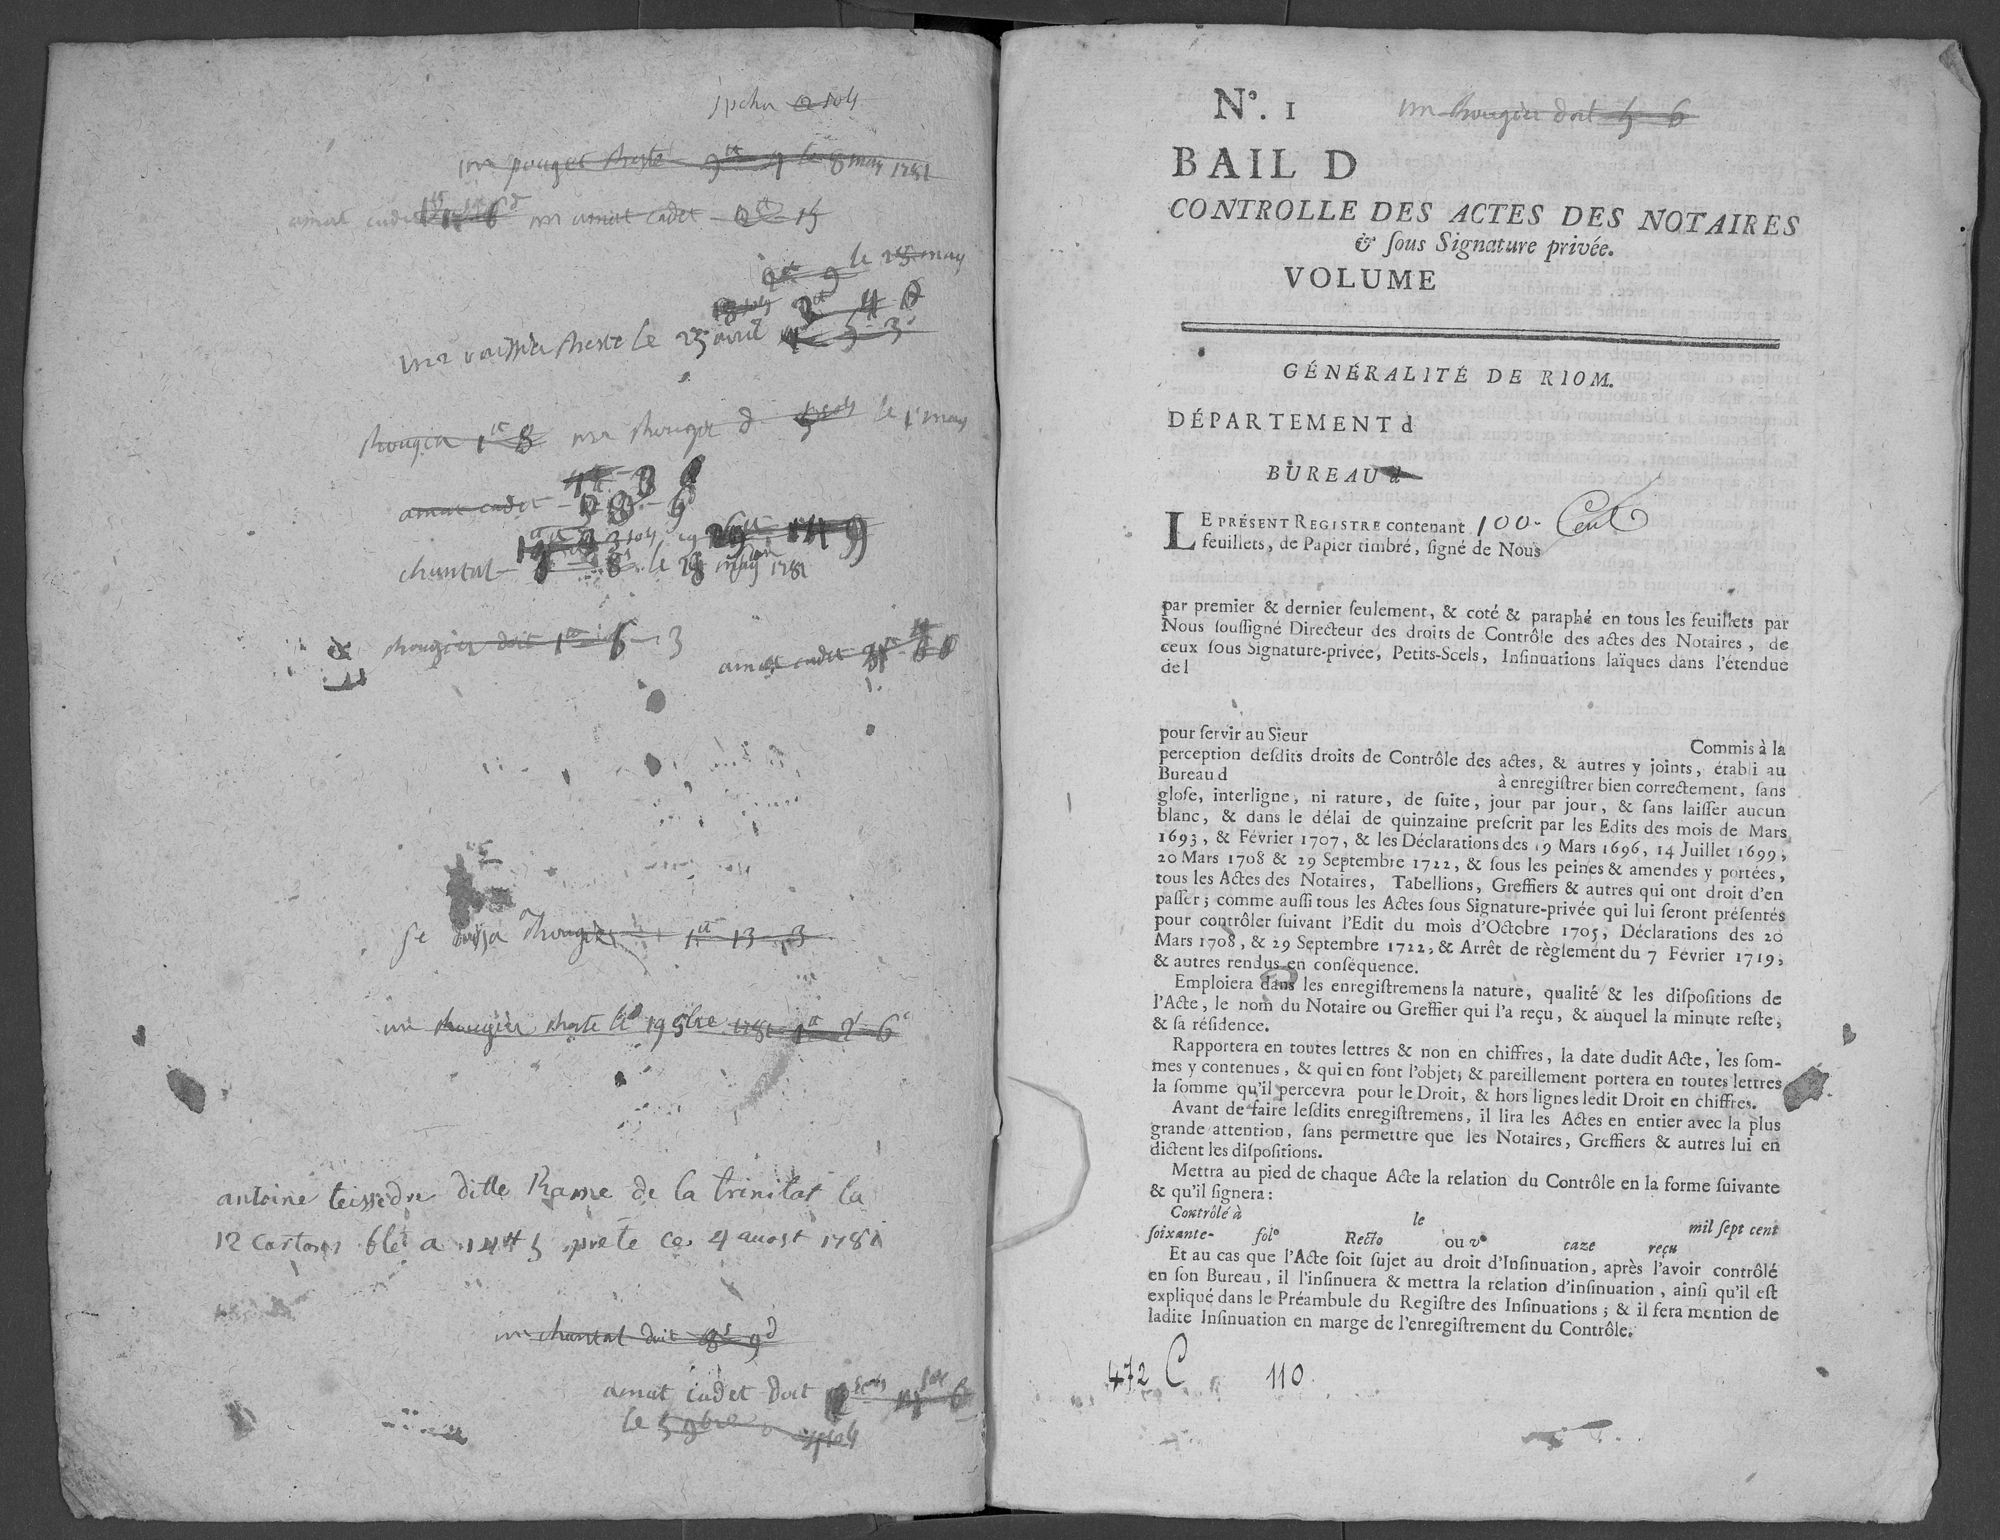 le 25 may
le 23 avril
le 1 may
amat cadet
chantal le 28 may 1781
doit 1tt 6 3
amat cadet
1tt 13 3
antoine teissedre ditte Rame de la trinitat la
12 cartons blé a 14tt 5 prete ce 4 auost 1781
mr chantal doit 8s 9d
amat cadet doit
le 5 9bre
N°. 1
mr Rougier doit 5 6
BAIL D
CONTROLLE DES ACTES DES NOTAIRES
& ſous Signature privée.
VOLUME
GÉNÉRALITÉ DE RIOM.
DÉPARTEMENT d
BUREAU d
LE PRÉSENT REGISTRE contenant 100. Cent
feuillets, de Papier timbré, ſigné de Nous
par premier & dernier ſeulement, & coté & paraphé en tous les feuillets par
Nous ſouſſigné Directeur des droits de Contrôle des actes des Notaires, de
ceux ſous Signature-privée, Petits-Scels, Inſinuations laïques dans l'étendue
del
pour ſervir au Sieur Commis à la
perception deſdits droits de Contrôle des actes, & autres y joints, établi au
Bureau d à enregiſtrer bien correctement, ſans
gloſe, interligne, ni rature, de ſuite, jour par jour, & ſans laiſſer aucun
blanc, & dans le délai de quinzaine preſcrit par les Edits des mois de Mars
1693, & Février 1707, & les Déclarations des 19 Mars 1696, 14 Juillet 1699,
20 Mars 1708 & 29 Septembre 1722, & ſous les peines & amendes y portées,
tous les Actes des Notaires, Tabellions, Greffiers & autres qui ont droit d'en
paſſer; comme auſſi tous les Actes ſous Signature-privée qui lui ſeront préſentés
pour contrôler ſuivant l'Edit du mois d'Octobre 1705, Déclarations des 20
Mars 1708, & 29 Septembre 1722, & Arrêt de règlement du 7 Février 1719,
& autres rendus en conſéquence.
Emploiera dans les enregiſtremens la nature, qualité & les diſpoſitions de
l'Acte, le nom du Notaire ou Greffier qui l'a reçu, & auquel la minute reſte,
& ſa réſidence.
Rapportera en toutes lettres & non en chiffres, la date dudit Acte, les ſom-
mes y contenues, & qui en font l'objet; & pareillement portera en toutes lettres
la ſomme qu'il percevra pour le Droit, & hors lignes ledit Droit en chiffres.
Avant de faire leſdits enregiſtremens, il lira les Actes en entier avec la plus
grande attention, ſans permettre que les Notaires, Greffiers & autres lui en
dictent les diſpoſitions.
Mettra au pied de chaque Acte la relation du Contrôle en la forme ſuivante
& qu'il ſignera:
Contrôlé à le mil ſept cent
ſoixante- fol° Recto ou v° caze reçu
Et au cas que l'Acte ſoit ſujet au droit d'Inſinuation, après l'avoir contrôlé
en ſon Bureau, il l'inſinuera & mettra la relation d'inſinuation, ainſi qu'il eſt
expliqué dans le Préambule du Regiſtre des Inſinuations; & il ſera mention de
ladite Inſinuation en marge de l'enregiſtrement du Contrôle.
472 C 110